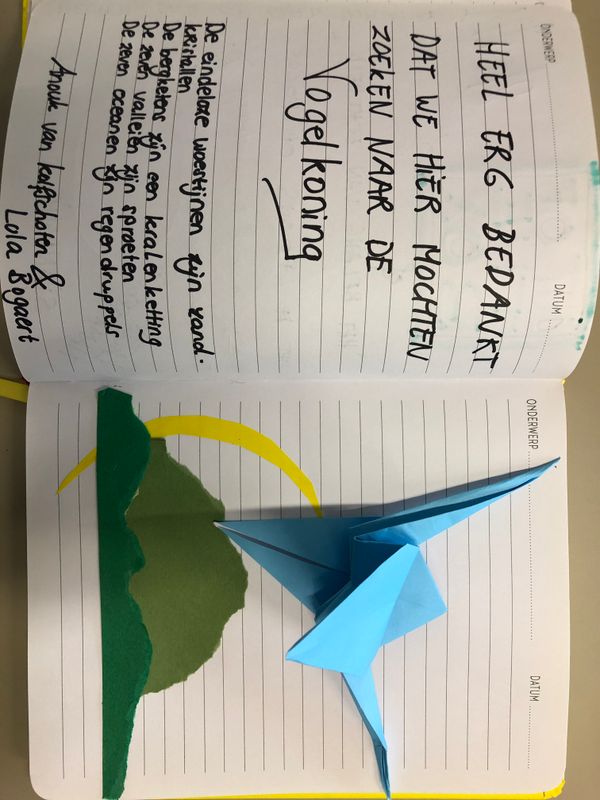 ONDERWERP
DATUM
HEEL ERG BEDANKT
DAT WE HIER MOCHTEN
ZOEKEN NAAR DE
Vogelkoning
De eindeloze woestijnen zijn zand-
kristallen
De bergketens zijn een kralenketting
De zeven valleien zijn sproeten
De zeven oceanen zijn regendruppels
Anouk van &
Lola Bogaert
ONDERWERP
DATUM